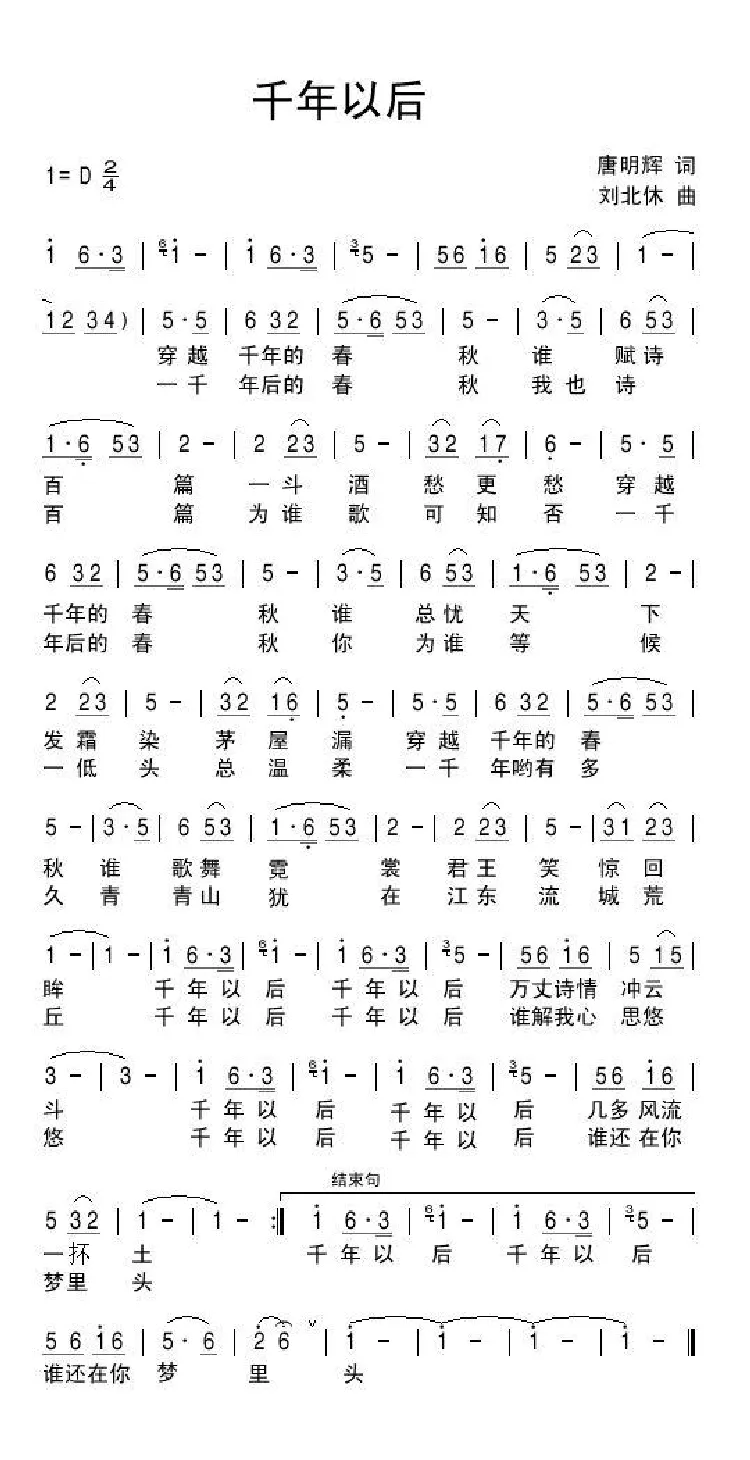 千年以后
1= D 2/4
唐明辉 词
刘北休 曲
1̇ 6·3 | ⁶1̇ - | 1̇ 6·3 | ³5 - | 56 1̇6 | 5 23 | 1 - |
12 34) | 5·5 | 6 32 | 5·6̣ 53 | 5 - | 3·5 | 6 53 |
穿越 千年的 春 秋 谁 赋诗
一千 年后的 春 秋 我也 诗
1·6̣ 53 | 2 - | 2 23 | 5 - | 32 17̣ | 6̣ - | 5·5 |
百 篇 一斗 酒 愁 更 愁 穿越
百 篇 为谁 歌 可 知 否 一千
6 32 | 5·6̣ 53 | 5 - | 3·5 | 6 53 | 1·6̣ 53 | 2 - |
千年的 春 秋 谁 总忧 天 下
年后的 春 秋 你 为谁 等 候
2 23 | 5 - | 32 16̣ | 5̣ - | 5·5 | 6 32 | 5·6̣ 53 |
发霜 染 茅 屋 漏 穿越 千年的 春
一低 头 总 温 柔 一千 年哟有 多
5 - | 3·5 | 6 53 | 1·6̣ 53 | 2 - | 2 23 | 5 - | 31 23 |
秋 谁 歌舞 霓 裳 君王 笑 惊 回
久 青 青山 犹 在 江东 流 城 荒
1 - | 1 - | 1̇ 6·3 | ⁶1̇ - | 1̇ 6·3 | ³5 - | 56 1̇6 | 5 15 |
眸 千 年 以 后 千 年 以 后 万丈诗情 冲云
丘 千 年 以 后 千 年 以 后 谁解我心 思悠
3 - | 3 - | 1̇ 6·3 | ⁶1̇ - | 1̇ 6·3 | ³5 - | 56 1̇6 |
斗 千 年 以 后 千 年 以 后 几多风流
悠 千 年 以 后 千 年 以 后 谁还在你
结束句
5 32 | 1 - | 1 - :‖ 1̇ 6·3 | ⁶1̇ - | 1̇ 6·3 | ³5 - |
一抔 土 千 年 以 后 千 年 以 后
梦里 头
56 1̇6 | 5·6 | 2̇ 6 ∨ | 1̇ - | 1̇ - | 1̇ - | 1̇ - ‖
谁还在你 梦 里 头